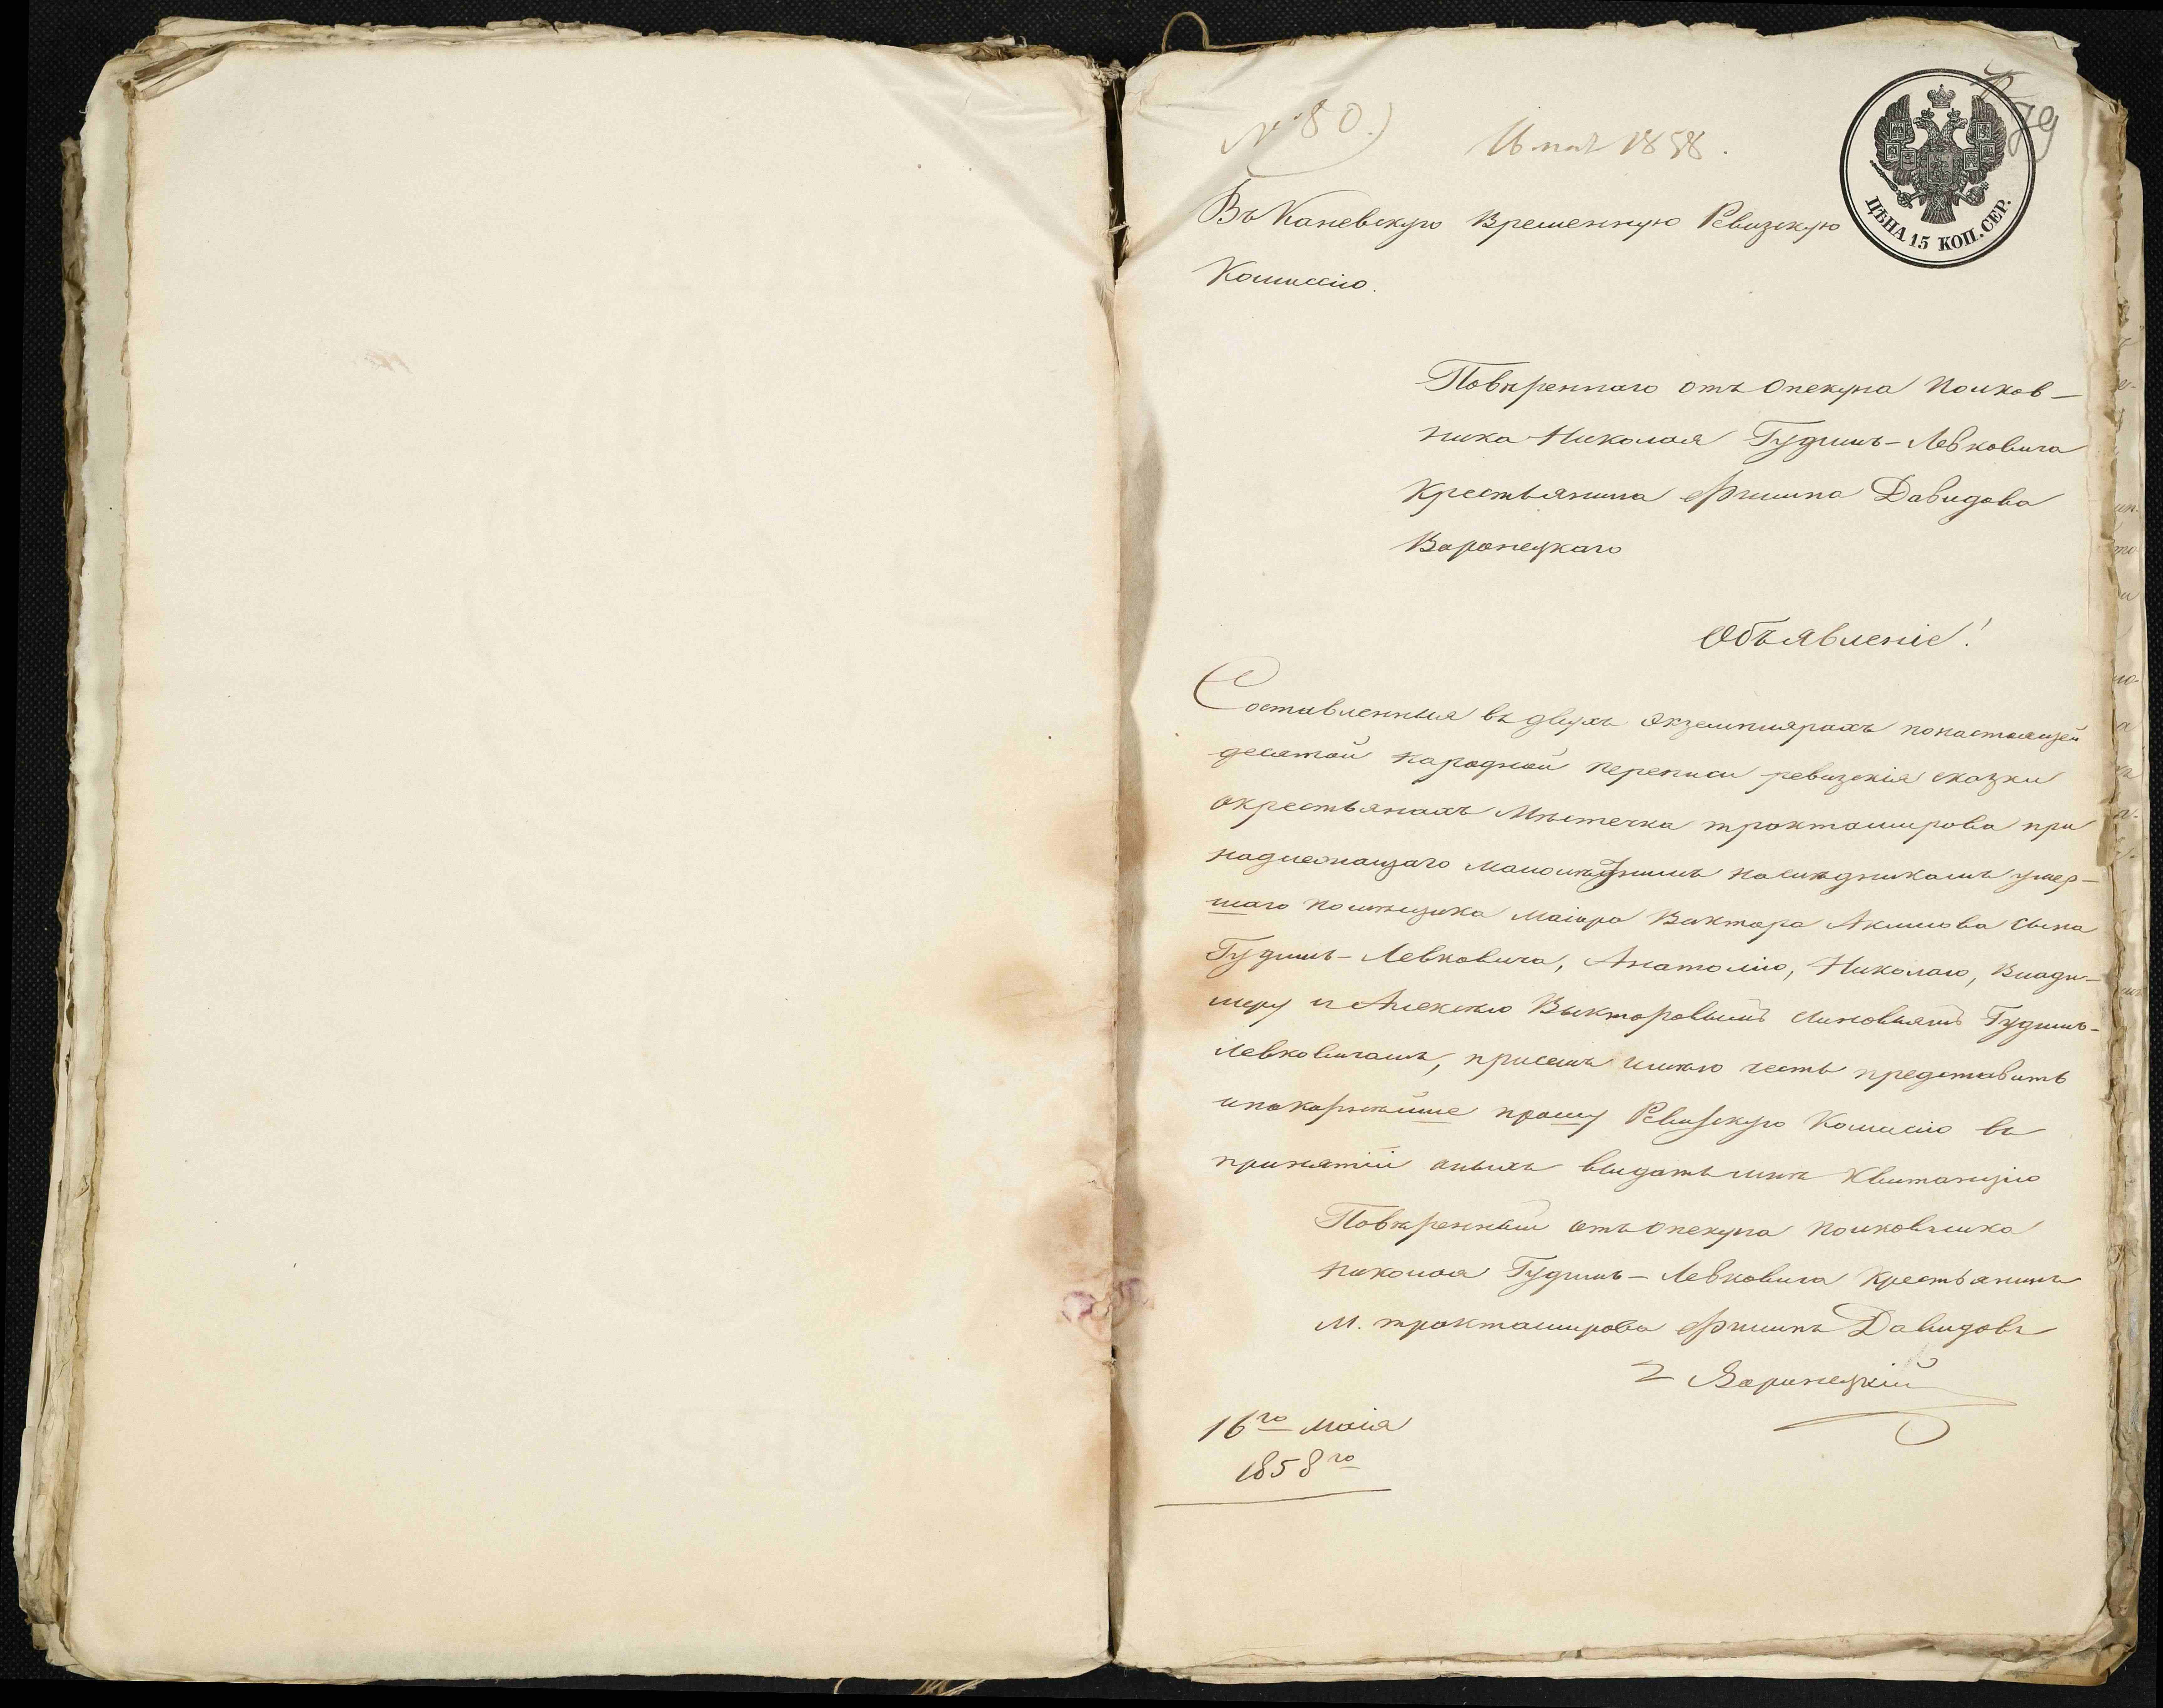 № 80.)
16 мая 1858.
79
ЦѢНА 15 КОП. СЕР.
Въ Каневскую Временную Ревизскую
Комиссiю.
Повѣреннаго отъ Опекуна Полков-
ника Николая Гудимъ-Левковича
Крестьянина Филипа Давидова
Варанецкаго
Объявленiе!
Составленныя въ двухъ экземплярахъ понастоящей
десятой народной переписи ревизскiя сказки
окрестьянахъ Мѣстечка трактамирова при
надлежащаго малолѣтнимъ наслѣдникамъ умер-
шаго помѣщика Маiора Виктора Акимова сына
Гудимъ-Левковича, Анатолiю, Николаю, Влади-
меру и Алексѣю Выкторовымъ синовьямъ Гудимъ-
Левковичамъ, присемъ имѣю честь представить
ипокорнѣйше прошу Ревизскую Комисiю въ
принятiи оныхъ выдать мнѣ Квитанцiю
Повѣренный отъ опекуна полковника
Николая Гудимъ-Левковича Крестьянинъ
М. трактамирова Филипъ Давидовъ
Варанецкiй
16го Маiя
1858го